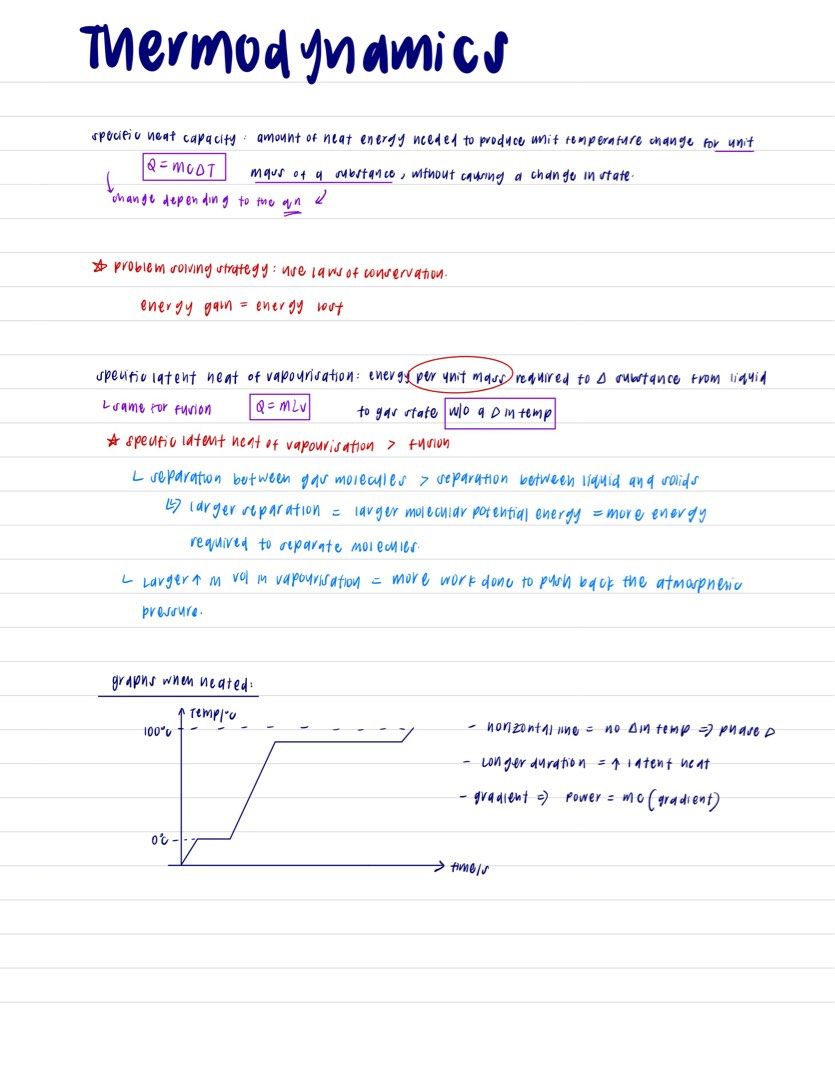 Thermodynamics
specific heat capacity : amount of heat energy needed to produce unit temperature change for unit
Q = mcΔT mass of a substance, without causing a change in state.
change depending to the qn
☆ problem solving strategy : use laws of conservation.
energy gain = energy lost
specific latent heat of vapourisation: energy per unit mass required to Δ substance from liquid
↳ same for fusion Q = mLv to gas state w/o a Δ in temp
★ specific latent heat of vapourisation > fusion
↳ separation between gas molecules > separation between liquid and solids
↳ larger separation = larger molecular potential energy = more energy
required to separate molecules.
↳ Larger ↑ in vol in vapourisation = more work done to push back the atmospheric
pressure.
graphs when heated:
Temp/°C
100°C
- horizontal line = no Δ in temp => phase Δ
- Longer duration = ↑ latent heat
- gradient => Power = mc (gradient)
0°C
time/s